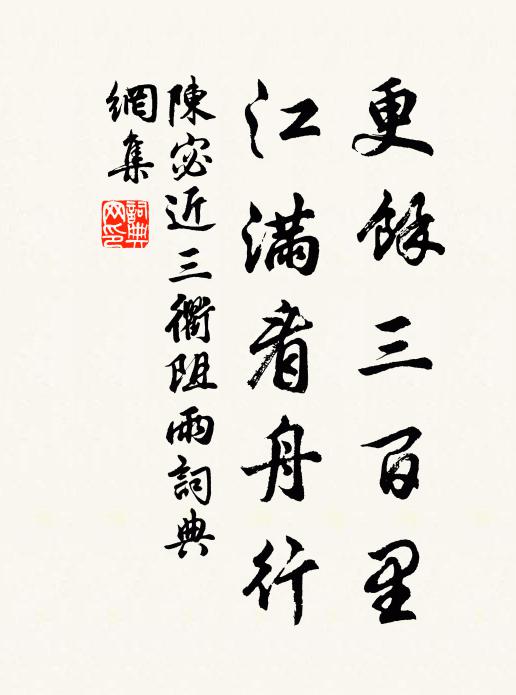 更餘三百里
江滿看舟行
陳宓近三衢阻雨詞典
網集
詞典網印